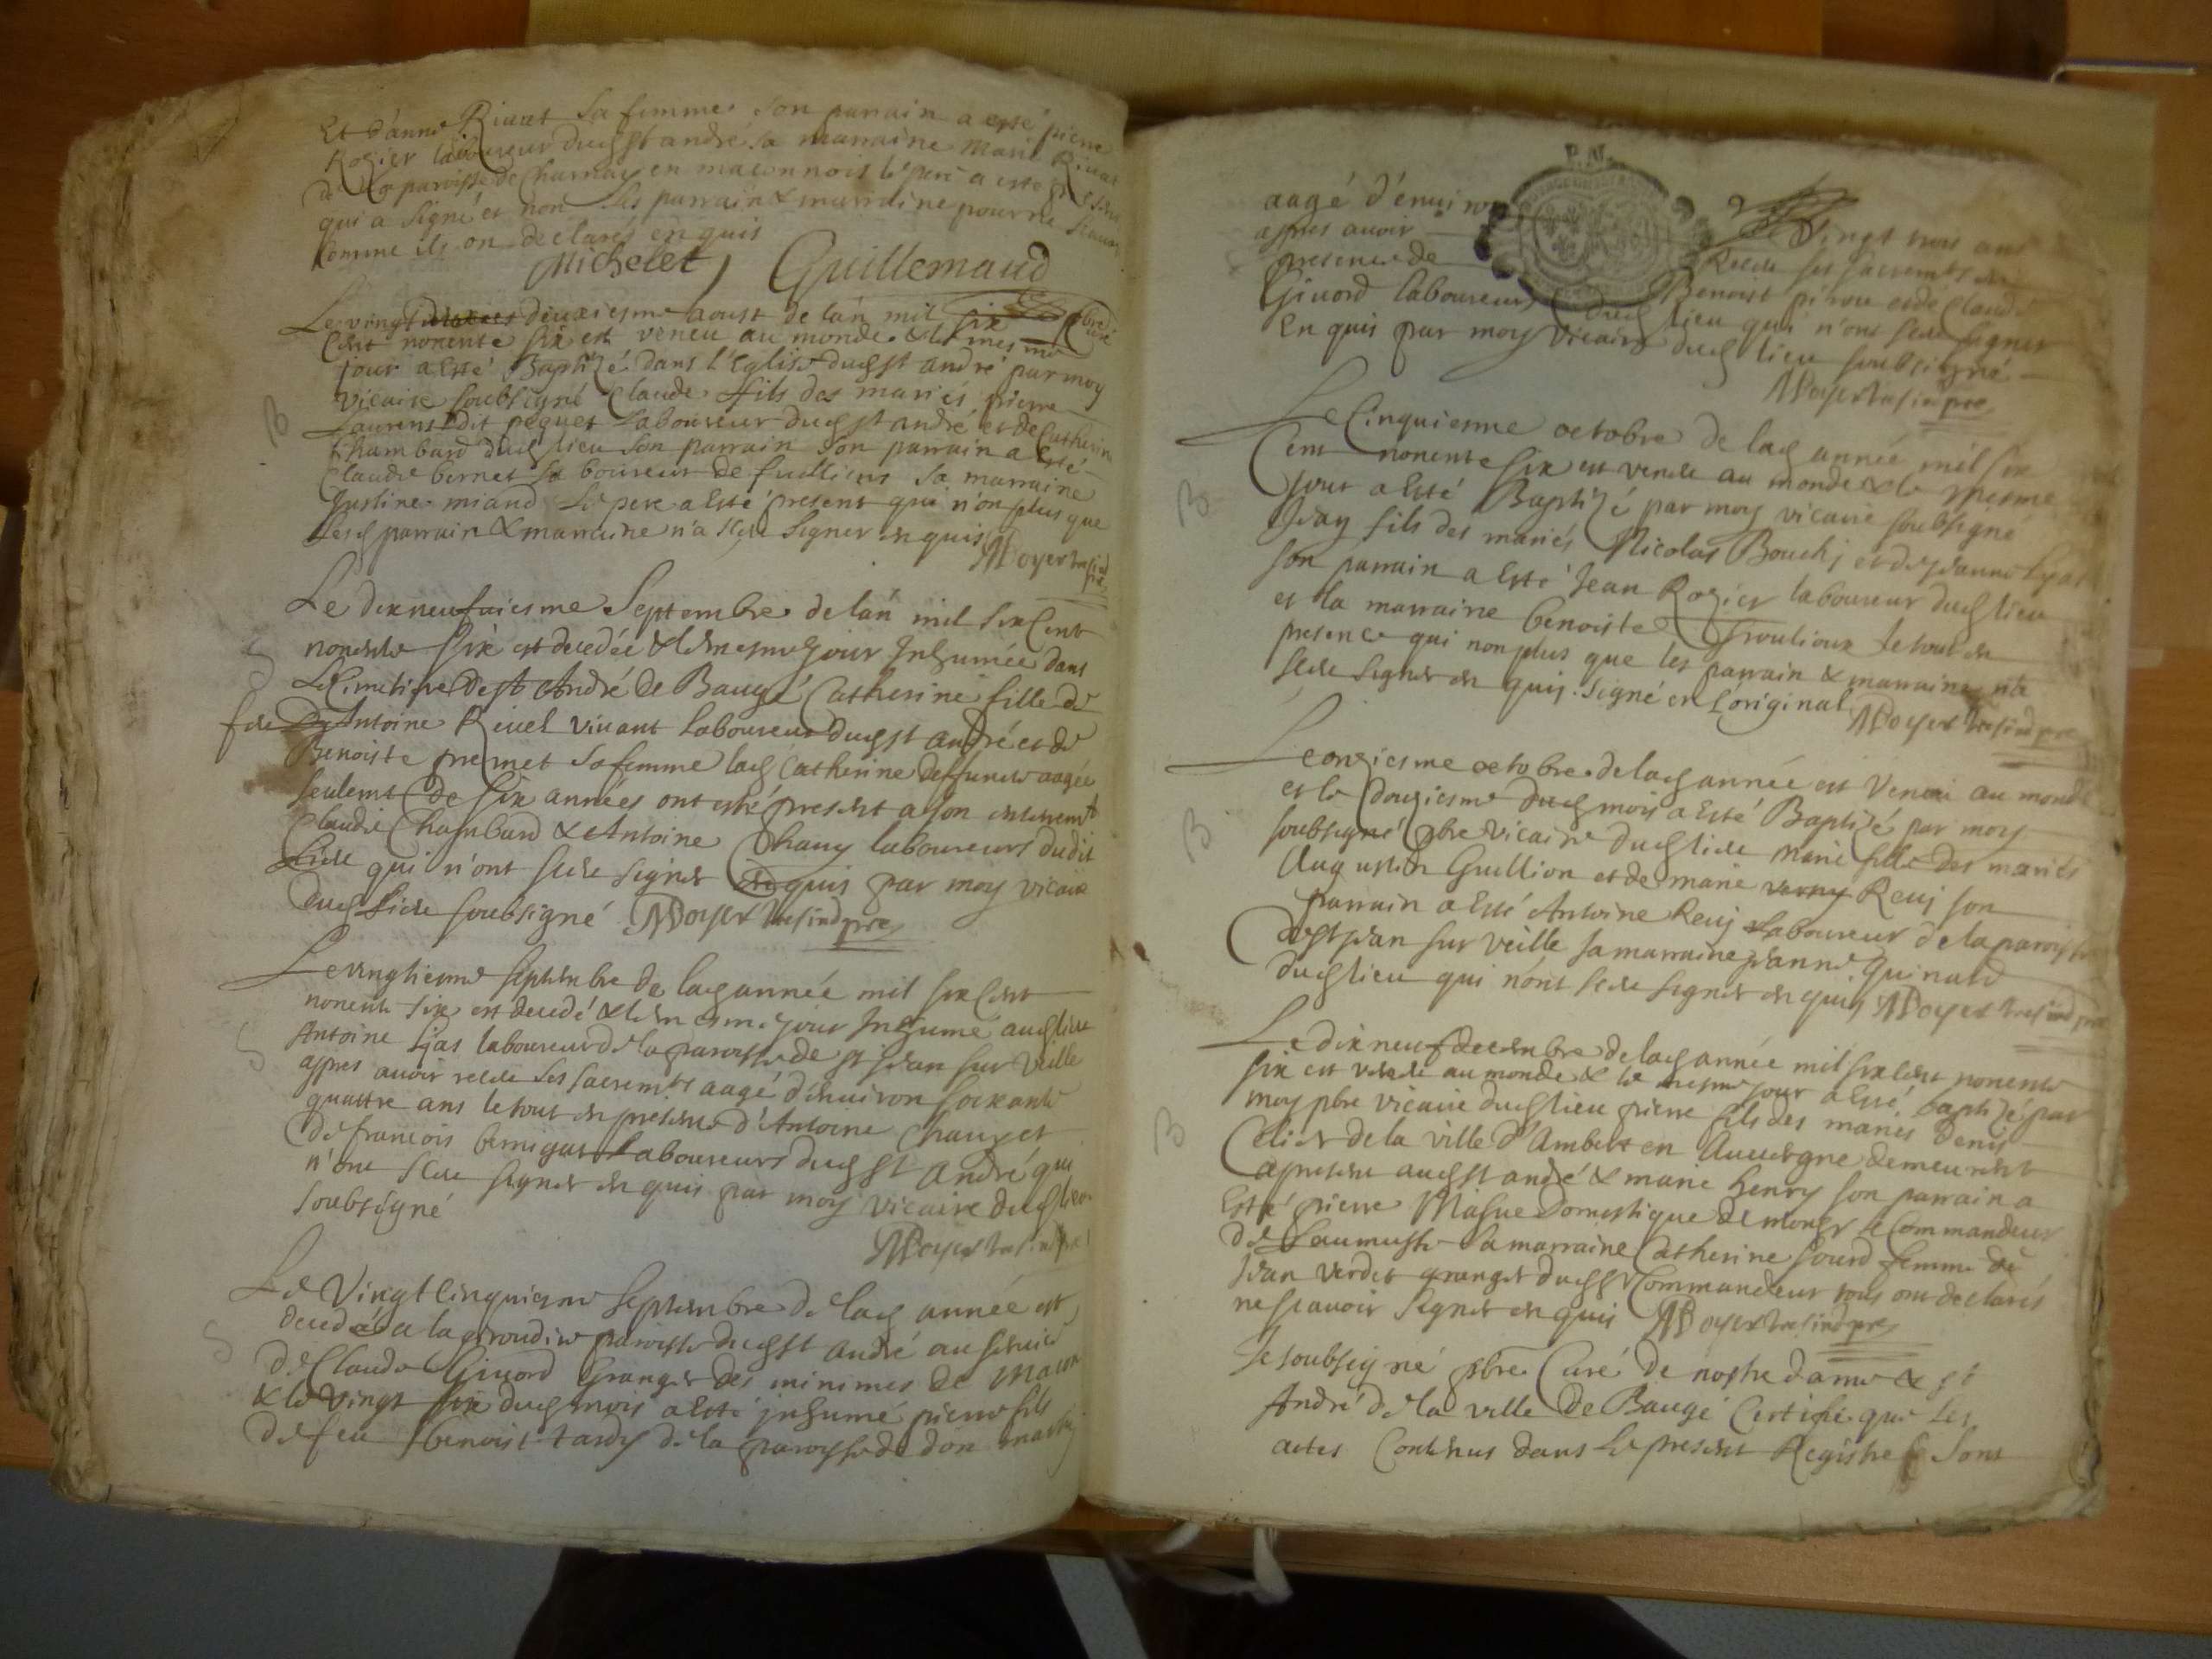 Et d'anne Rivet sa femme son parrain a esté pierre
Rogier laboureur dud st andré sa marraine marie Rivet
de la paroisse de Charnay en maconnois le pere a esté present
qui a signé et non les parrain & marraine pour ne scavoir
comme ils on declarés enquis
Michelet Guillemaud pbre Curé
Le vingt deuxiesme aoust de lan mil six
cent nonente six est veneu au monde & le mesme
jour a esté Baptizé dans l'Eglise dud st andré par moy
vicaire soubsigné Claude fils des mariés pierre
Laurent dit peguet Laboureur dud st andré et de Catherine
Chambard dud lieu son parrain son parrain a esté
Claude bernet laboureur de sa marraine
Justine miand Le pere a esté present qui n'on plus que
lesd parrain & marraine n'a sceu signer enquis
B
Le dixneufviesme Septembre de lan mil six Cent
nonente six est decedée & le mesme jour Inhumée dans
Le Cimetiere de st André de Baugé Catherine fille de
feu Antoine Rivel vivant laboureur dud st andré et de
Benoiste premet sa femme lad Catherine deffuncte aagée
seulemt de six années ont esté present a son enterremt
Claude Chambard & Antoine Chany laboureurs dudit
Lieu qui n'ont sceu signer enquis par moy vicaire
dud Lieu soubsigné
S
Le vingtiesme septembre de lad année mil six Cent
nonente six est decedé & le mesme jour Inhumé aud lieu
Antoine Ljas laboureur de la paroisse de st jean sur veille
apres avoir receu ses sacremts aagé d'environ soixante
quattre ans le tout en presence d'Antoine Chany et
de francois bernigat Laboureurs dud st André qui
n'ont sceu signer enquis par moy vicaire dud lieu
soubsigné
S
Le Vingt cinquiesme septembre de lad année est
decedé a la paroisse dud st andré au service
de Claude Givord Granger des minimes de Macon
& le vingt six dud mois a esté inhumé pierre fils
de feu benoist tardy de la paroisse de don martin
S
aagé d'environ Vingt trois ans
apres avoir Receu ses sacremts en
presence de Benoist et de Claude
Givord laboureurs dud lieu qui n'ont sceu signer
enquis par moy vicaire dud lieu soubsigné
Le Cinquiesme octobre de lad année mil six
Cent nonente six est veneu au monde & le mesme
jour a esté Baptizé par moy vicaire soubsigné
Jean fils des mariés Nicolas Bouchi et de Jeanne
son parrain a esté Jean Rogier laboureur dud lieu
et la marraine benoiste le tout en
presence qui non plus que les parrain & marraine n'a
sceu signer enquis. signé en l'original
B
Le onziesme octobre de lad année est venue au monde
et le douziesme dud mois a esté Baptizé par moy
soubsigné pbre vicaire dud lieu marie fille des mariés
Augustin Guillion et de marie Revj son
parrain a esté Antoine Revj Laboureur de la paroisse
de st jean sur veille sa marraine jeanne Guinard
dud lieu qui n'ont sceu signer enquis
B
Le dixneuf decembre de lad année mil six cent nonente
six est veneu au monde & le mesme jour a esté baptizé par
moy pbre vicaire dud lieu pierre fils des mariés denis
Celier de la ville d'Ambert en Auvergne demeurent
a present aud st andré & marie henry son parrain a
esté pierre Masue domestique de monsr le Commandeur
de Laumusse sa marraine Catherine sourd femme de
Jean verdet granger dud sr Commandeur tous ont declarés
ne scavoir signer enquis
B
Je soubsigné pbre Curé de nostre dame & st
André de la ville de Baugé Certifie que les
actes Contenus dans Le present Registre sont